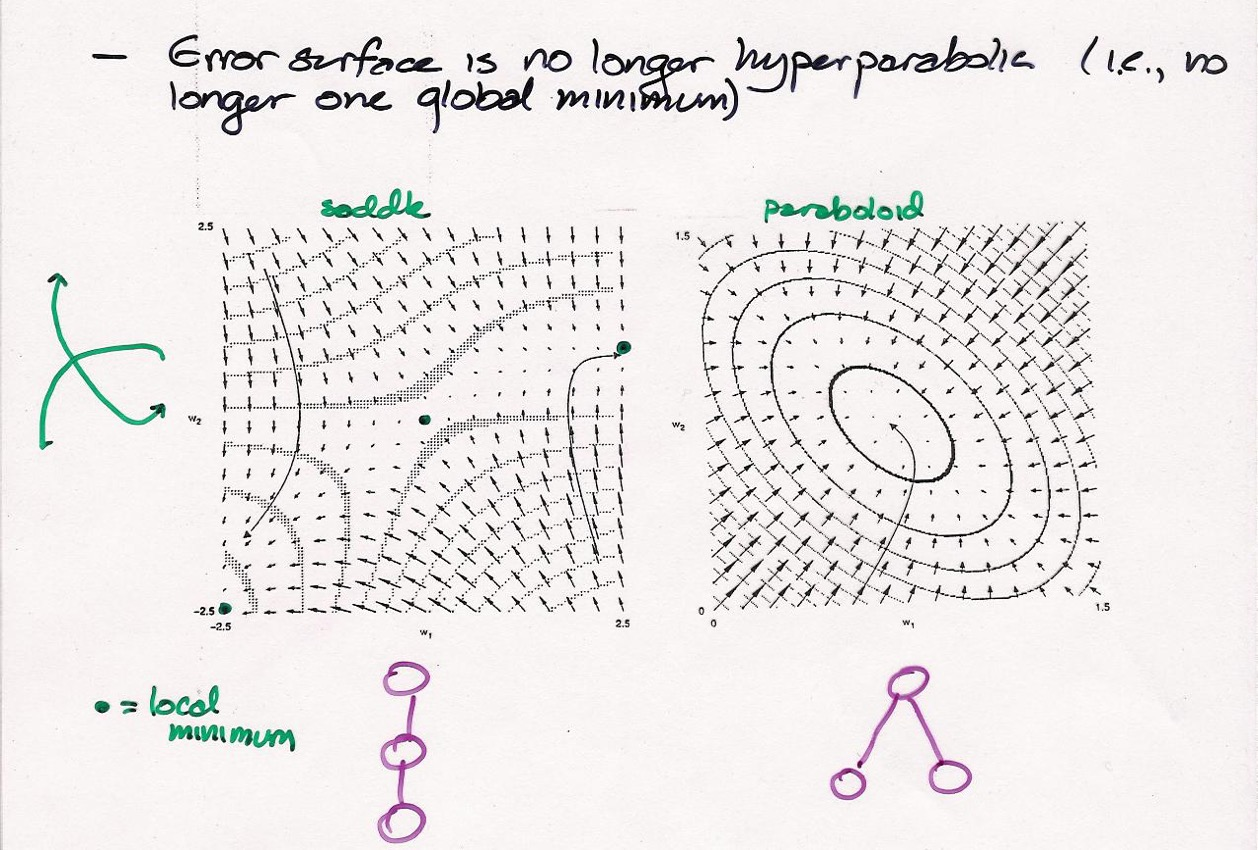 — Error surface is no longer hyperparabolic (i.e., no
longer one global minimum)
saddle
paraboloid
2.5
w₂
-2.5
-2.5
w₁
2.5
1.5
w₂
0
0
w₁
1.5
• = local
minimum